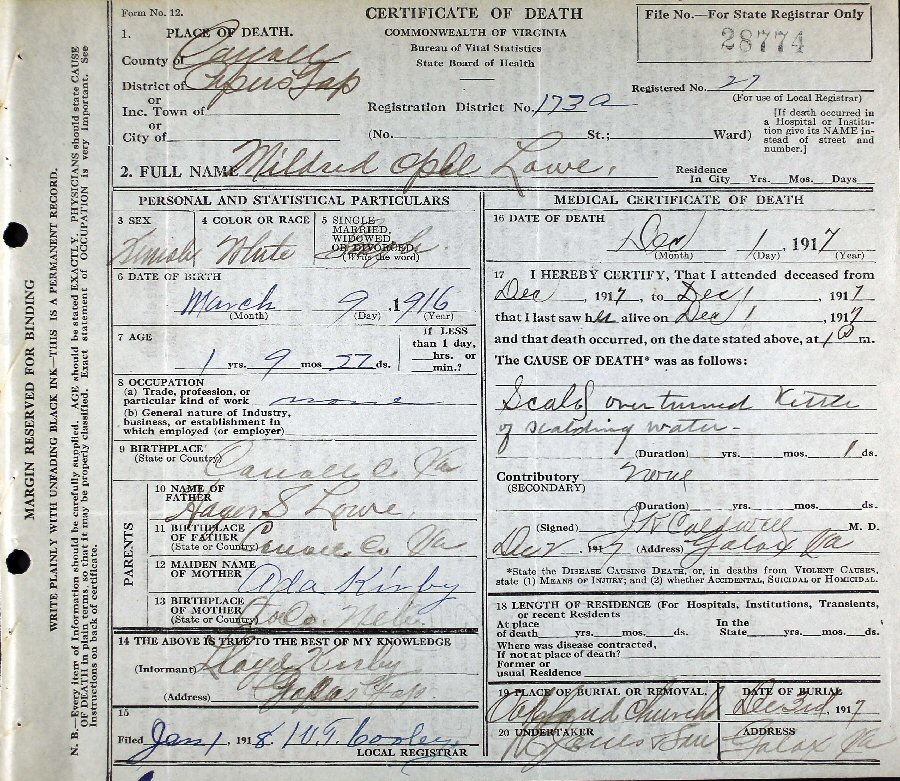 Form No. 12.
CERTIFICATE OF DEATH
COMMONWEALTH OF VIRGINIA
Bureau of Vital Statistics
State Board of Health
File No.—For State Registrar Only
28774
1. PLACE OF DEATH.
County of Carroll
District of Pipers Gap
or
Inc. Town of
or
City of
Registration District No. 173a
Registered No. 27
(For use of Local Registrar)
(No. St.; Ward)
[If death occurred in
a Hospital or Institu-
tion give its NAME in-
stead of street and
number.]
2. FULL NAME Mildred Lowe.
Residence
In City Yrs. Mos. Days
PERSONAL AND STATISTICAL PARTICULARS
3 SEX
Female
4 COLOR OR RACE
White
5 SINGLE
MARRIED,
WIDOWED,
OR DIVORCED.
(Write the word)
Single
6 DATE OF BIRTH
March 9, 1916
(Month) (Day) (Year)
7 AGE
1 yrs. 9 mos. 27 ds.
If LESS
than 1 day,
hrs. or
min.?
8 OCCUPATION
(a) Trade, profession, or
particular kind of work none
(b) General nature of Industry,
business, or establishment in
which employed (or employer)
9 BIRTHPLACE
(State or Country)
Carroll Co Va
PARENTS
10 NAME OF
FATHER
S Lowe.
11 BIRTHPLACE
OF FATHER
(State or Country)
Carroll Co. Va
12 MAIDEN NAME
OF MOTHER
Ada Kirby
13 BIRTHPLACE
OF MOTHER
(State or Country)
14 THE ABOVE IS TRUE TO THE BEST OF MY KNOWLEDGE
(Informant) Lloyd Kirby
(Address) Gap.
15
Filed Jan 1, 1918. W.T. Cooley
LOCAL REGISTRAR
MEDICAL CERTIFICATE OF DEATH
16 DATE OF DEATH
Dec 1, 1917
(Month) (Day) (Year)
17 I HEREBY CERTIFY, That I attended deceased from
Dec , 1917, to Dec 1 , 1917
that I last saw her alive on Dec 1 , 1917
and that death occurred, on the date stated above, at m.
The CAUSE OF DEATH* was as follows:
Scald overturned Kettle
of scalding water-
(Duration) yrs. mos. 1 ds.
Contributory None
(SECONDARY)
(Duration) yrs. mos. ds.
(Signed) J K Caldwell M. D.
Dec 2, 1917 (Address) Galax Va
*State the DISEASE CAUSING DEATH, or, in deaths from VIOLENT CAUSES,
state (1) MEANS OF INJURY; and (2) whether ACCIDENTAL, SUICIDAL or HOMICIDAL.
18 LENGTH OF RESIDENCE (For Hospitals, Institutions, Transients,
or recent Residents
At place In the
of death yrs. mos. ds. State yrs. mos. ds.
Where was disease contracted,
If not at place of death?
Former or
usual Residence
19 PLACE OF BURIAL OR REMOVAL.
Church
DATE OF BURIAL
Dec 3rd, 1917
20 UNDERTAKER
ADDRESS
Galax Va
MARGIN RESERVED FOR BINDING
WRITE PLAINLY WITH UNFADING BLACK INK—THIS IS A PERMANENT RECORD.
N. B.—Every item of Information should be carefully supplied. AGE should be stated EXACTLY. PHYSICIANS should state CAUSE
OF DEATH in plain terms, so that it may be properly classified. Exact statement of OCCUPATION is very important. See
Instructions on back of certificate.